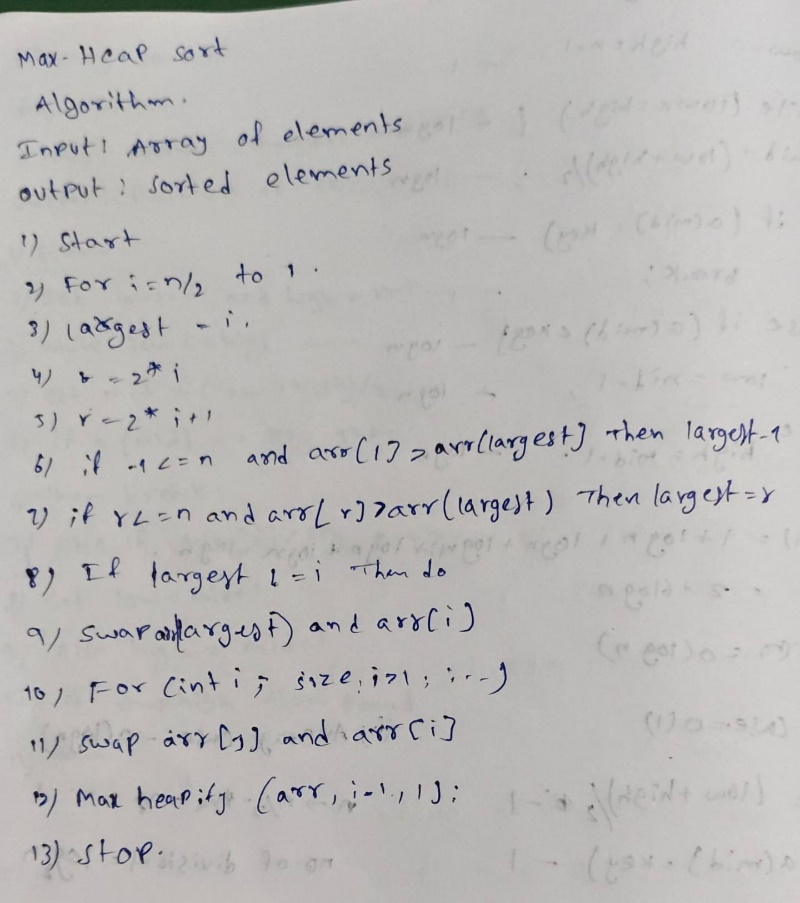 Max-Heap sort
Algorithm.
Input: Array of elements
output: sorted elements
1) Start
2) For i=n/2 to 1.
3) largest = i.
4) = 2*i
5) r = 2*i+1
6) if <=n and arr[l]>arr[largest] Then largest=l
7) if r<=n and arr[r]>arr(largest) Then largest=r
8) If largest != i Then do
9) swap arr(largest) and arr[i]
10) For (int i = size; i>1; i--)
11) swap arr[1] and arr[i]
12) Max heapify (arr, i-1, 1);
13) stop.